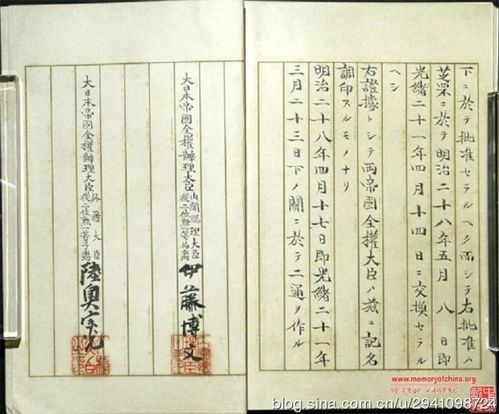 下ニ於テ批准セラルヘク而シテ右批准ハ
芝罘ニ於テ明治二十八年五月八日即
光緒二十一年四月十四日ニ交換セラル
ヘシ
右證據トシテ兩帝國全權大臣ハ茲ニ記名
調印スルモノナリ
明治二十八年四月十七日即光緒二十一年
三月二十三日下ノ關ニ於テ二通ヲ作ル
大日本帝國全權辦理大臣
內閣總理大臣
從二位勲一等伯爵
伊藤博文
大日本帝國全權辦理大臣
外務大臣
從二位勲一等子爵
陸奥宗光
www.memoryofchina.org
blog.sina.com.cn/u/2941098724